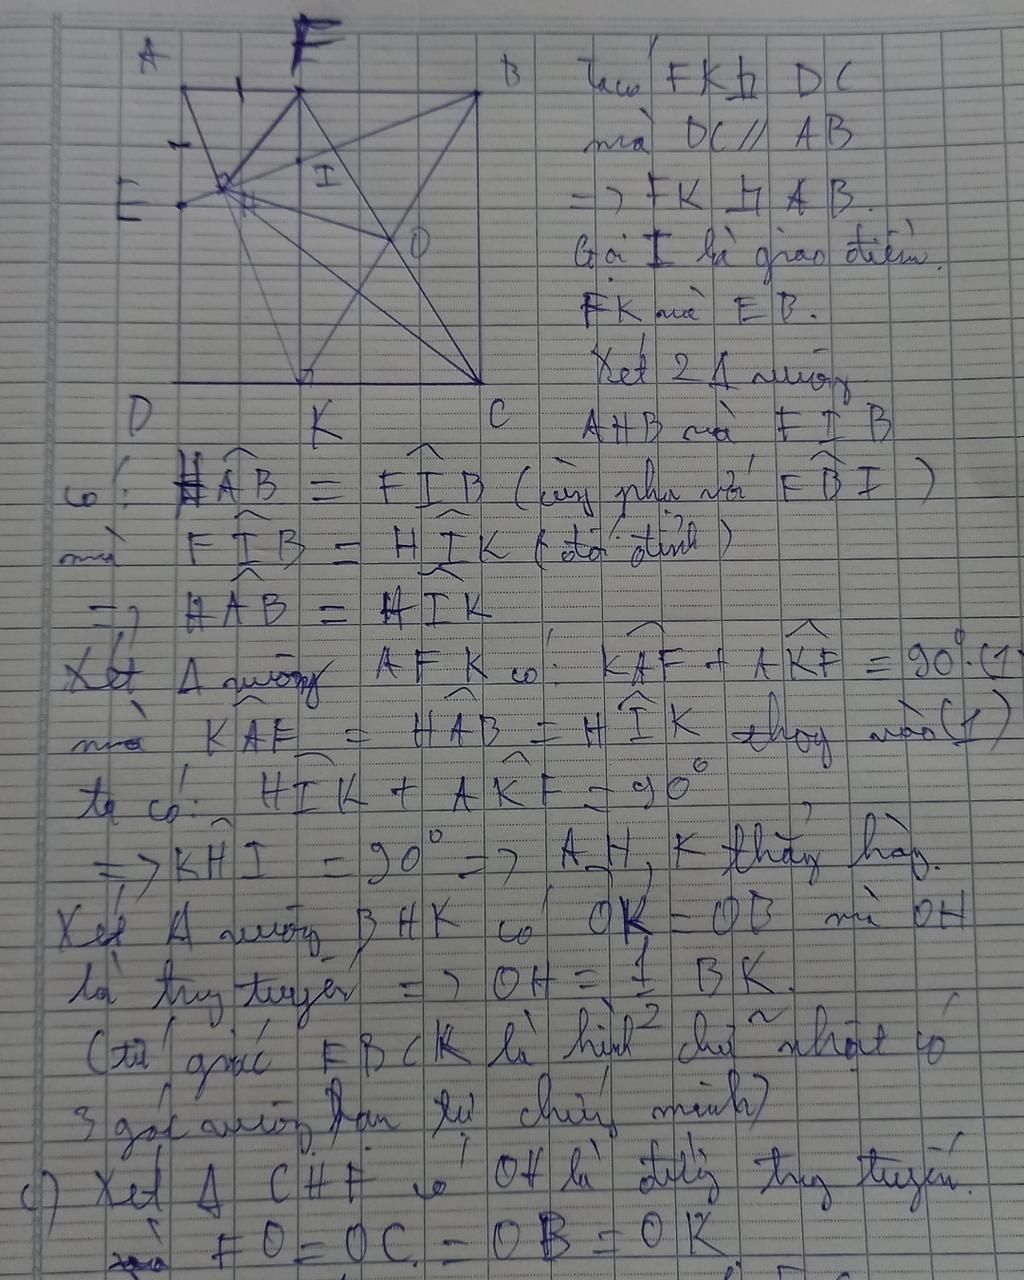 A F B
E H I O
D K C
Ta có FK ⊥ DC
mà DC // AB
=> FK ⊥ AB.
Gọi I là giao điểm
FK và EB.
Xét 2 Δ vuông
AHB và FIB
có: HAB = FIB (cùng phụ với FBI)
mà FIB = HIK (đối đỉnh)
=> HAB = HIK
Xét Δ vuông AFK có: KAF + AKF = 90° (1)
mà KAF = HAB = HIK thay vào (1)
ta có: HIK + AKF = 90°
=> KHI = 90° => A, H, K thẳng hàng.
Xét Δ vuông BHK có OK = OB mà OH
là trung tuyến => OH = 1/2 BK.
(tứ giác FBCK là hình chữ nhật có
3 góc vuông bạn tự chứng minh)
c) Xét Δ CHF có OH là đường trung tuyến.
mà FO = OC = OB = OK